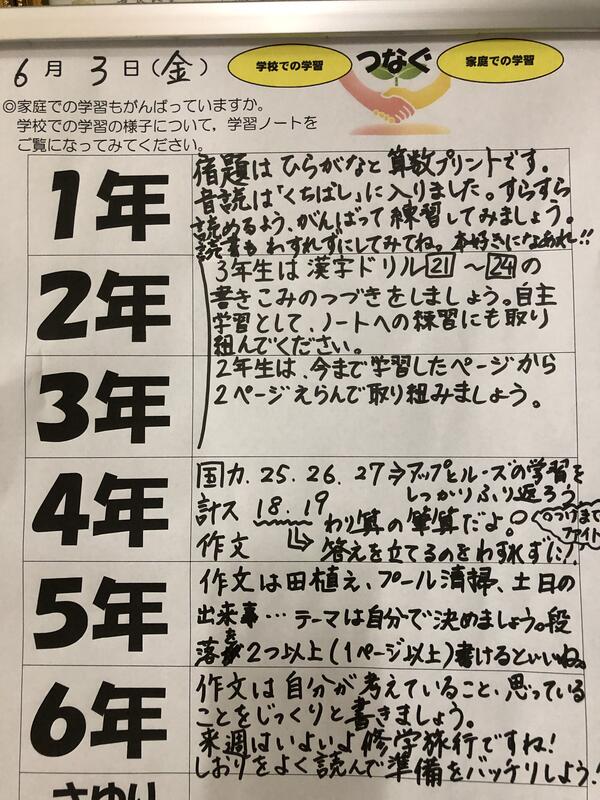 6月 3日(金)
学校での学習
つなぐ
家庭での学習
◎家庭での学習もがんばっていますか。
学校での学習の様子について，学習ノートを
ご覧になってみてください。
1年
宿題はひらがなと算数プリントです。
音読は「くちばし」に入りました。すらすら
読めるよう、がんばって練習してみましょう。
読書もわすれずにしてみてね。本好きになあれ!!
2年
3年生は漢字ドリル21～24の
書きこみのつづきをしましょう。自主
学習として、ノートへの練習にも取り
組んでください。
3年
2年生は、今まで学習したページから
2ページえらんで取り組みましょう。
4年
国力.25.26.27⇒アップとルーズの学習を
しっかりふり返ろう
計ス 18.19
わり算の筆算だよ。
○つけまで
ファイト
作文
答えを立てるのをわすれずに!
5年
作文は田植え、プール清掃、土日の
出来事…テーマは自分で決めましょう。段
落を2つ以上(1ページ以上)書けるといいね。
6年
作文は自分が考えていること、思っている
ことをじっくりと書きましょう。
来週はいよいよ修学旅行ですね!
しおりをよく読んで準備をバッチリしよう!
さゆり